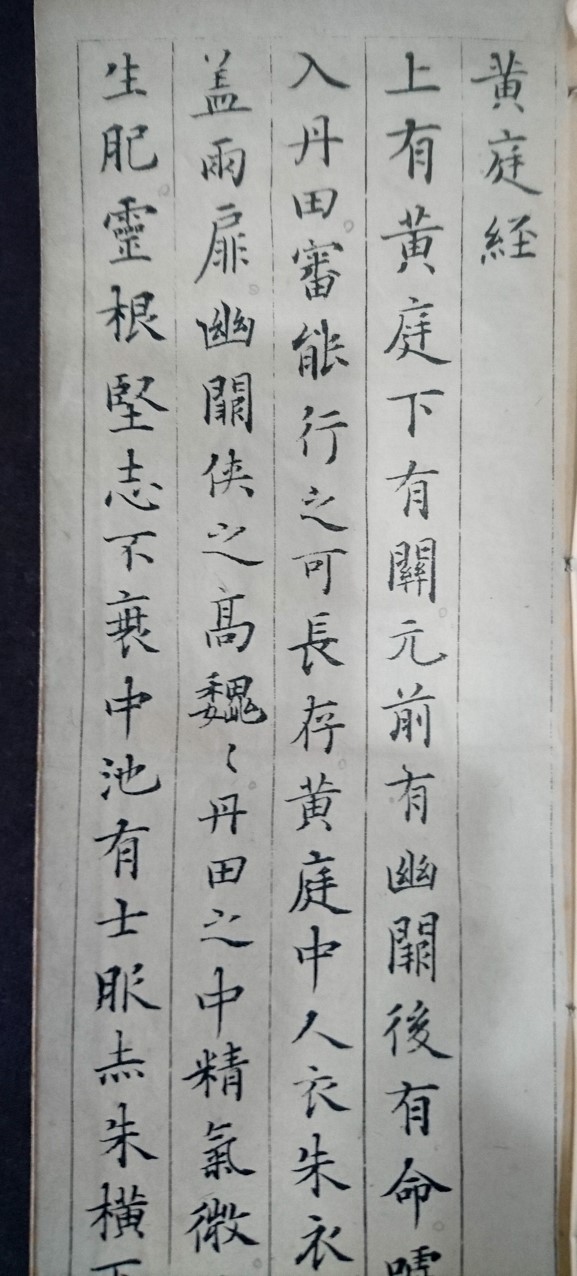 黄庭経
上有黄庭下有關元前有幽闕後有命
入丹田審能行之可長存黄庭中人衣朱衣
盖兩扉幽闕侠之高魏〻丹田之中精氣微
生肥靈根堅志不衰中池有士服赤朱橫下